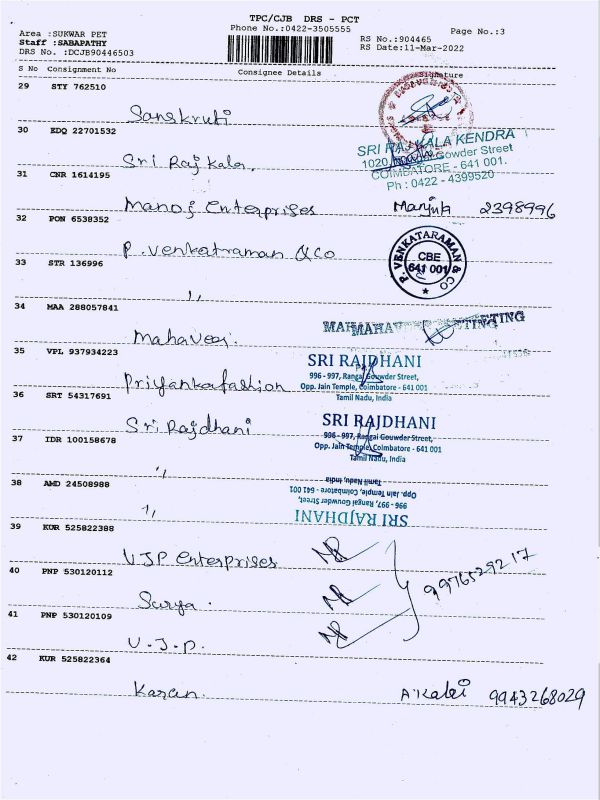 TPC/CJB DRS - PCT
Phone No.:0422-3505555
Page No.:3
Area :SUKWAR PET
Staff :SABAPATHY
DRS No. :DCJB90446503
RS No.:904465
RS Date:11-Mar-2022
S No Consignment No Consignee Details Signature
29 STY 762510
Sanskruti
30 EDQ 22701532
Sri Raj Kala.
SRI RAJ KALA KENDRA
1020, Gowder Street
COIMBATORE - 641 001.
Ph : 0422 - 4399520
31 CNR 1614195
Manoj Enterprises Manjuh 2398996
32 PON 6538352
P. Venkatraman & Co
P. VENKATARAMAN & CO
CBE
641 001
33 STR 136996
,,
34 MAA 288057841
Mahaveer.
35 VPL 937934223
Priyanka fashion
SRI RAJDHANI
996 - 997, Rangai Gouwder Street,
Opp. Jain Temple, Coimbatore - 641 001
Tamil Nadu, India
36 SRT 54317691
Sri Rajdhani
SRI RAJDHANI
996 - 997, Rangai Gouwder Street,
Opp. Jain Temple, Coimbatore - 641 001
Tamil Nadu, India
37 IDR 100158678
,,
38 AMD 24508988
,,
SRI RAJDHANI
996 - 997, Rangai Gouwder Street,
Opp. Jain Temple, Coimbatore - 641 001
Tamil Nadu, India
39 KUR 525822388
V.J.P Enterprises
40 PNP 530120112
Surya.
9976529217
41 PNP 530120109
V.J.P.
42 KUR 525822364
Karan. 9943268029